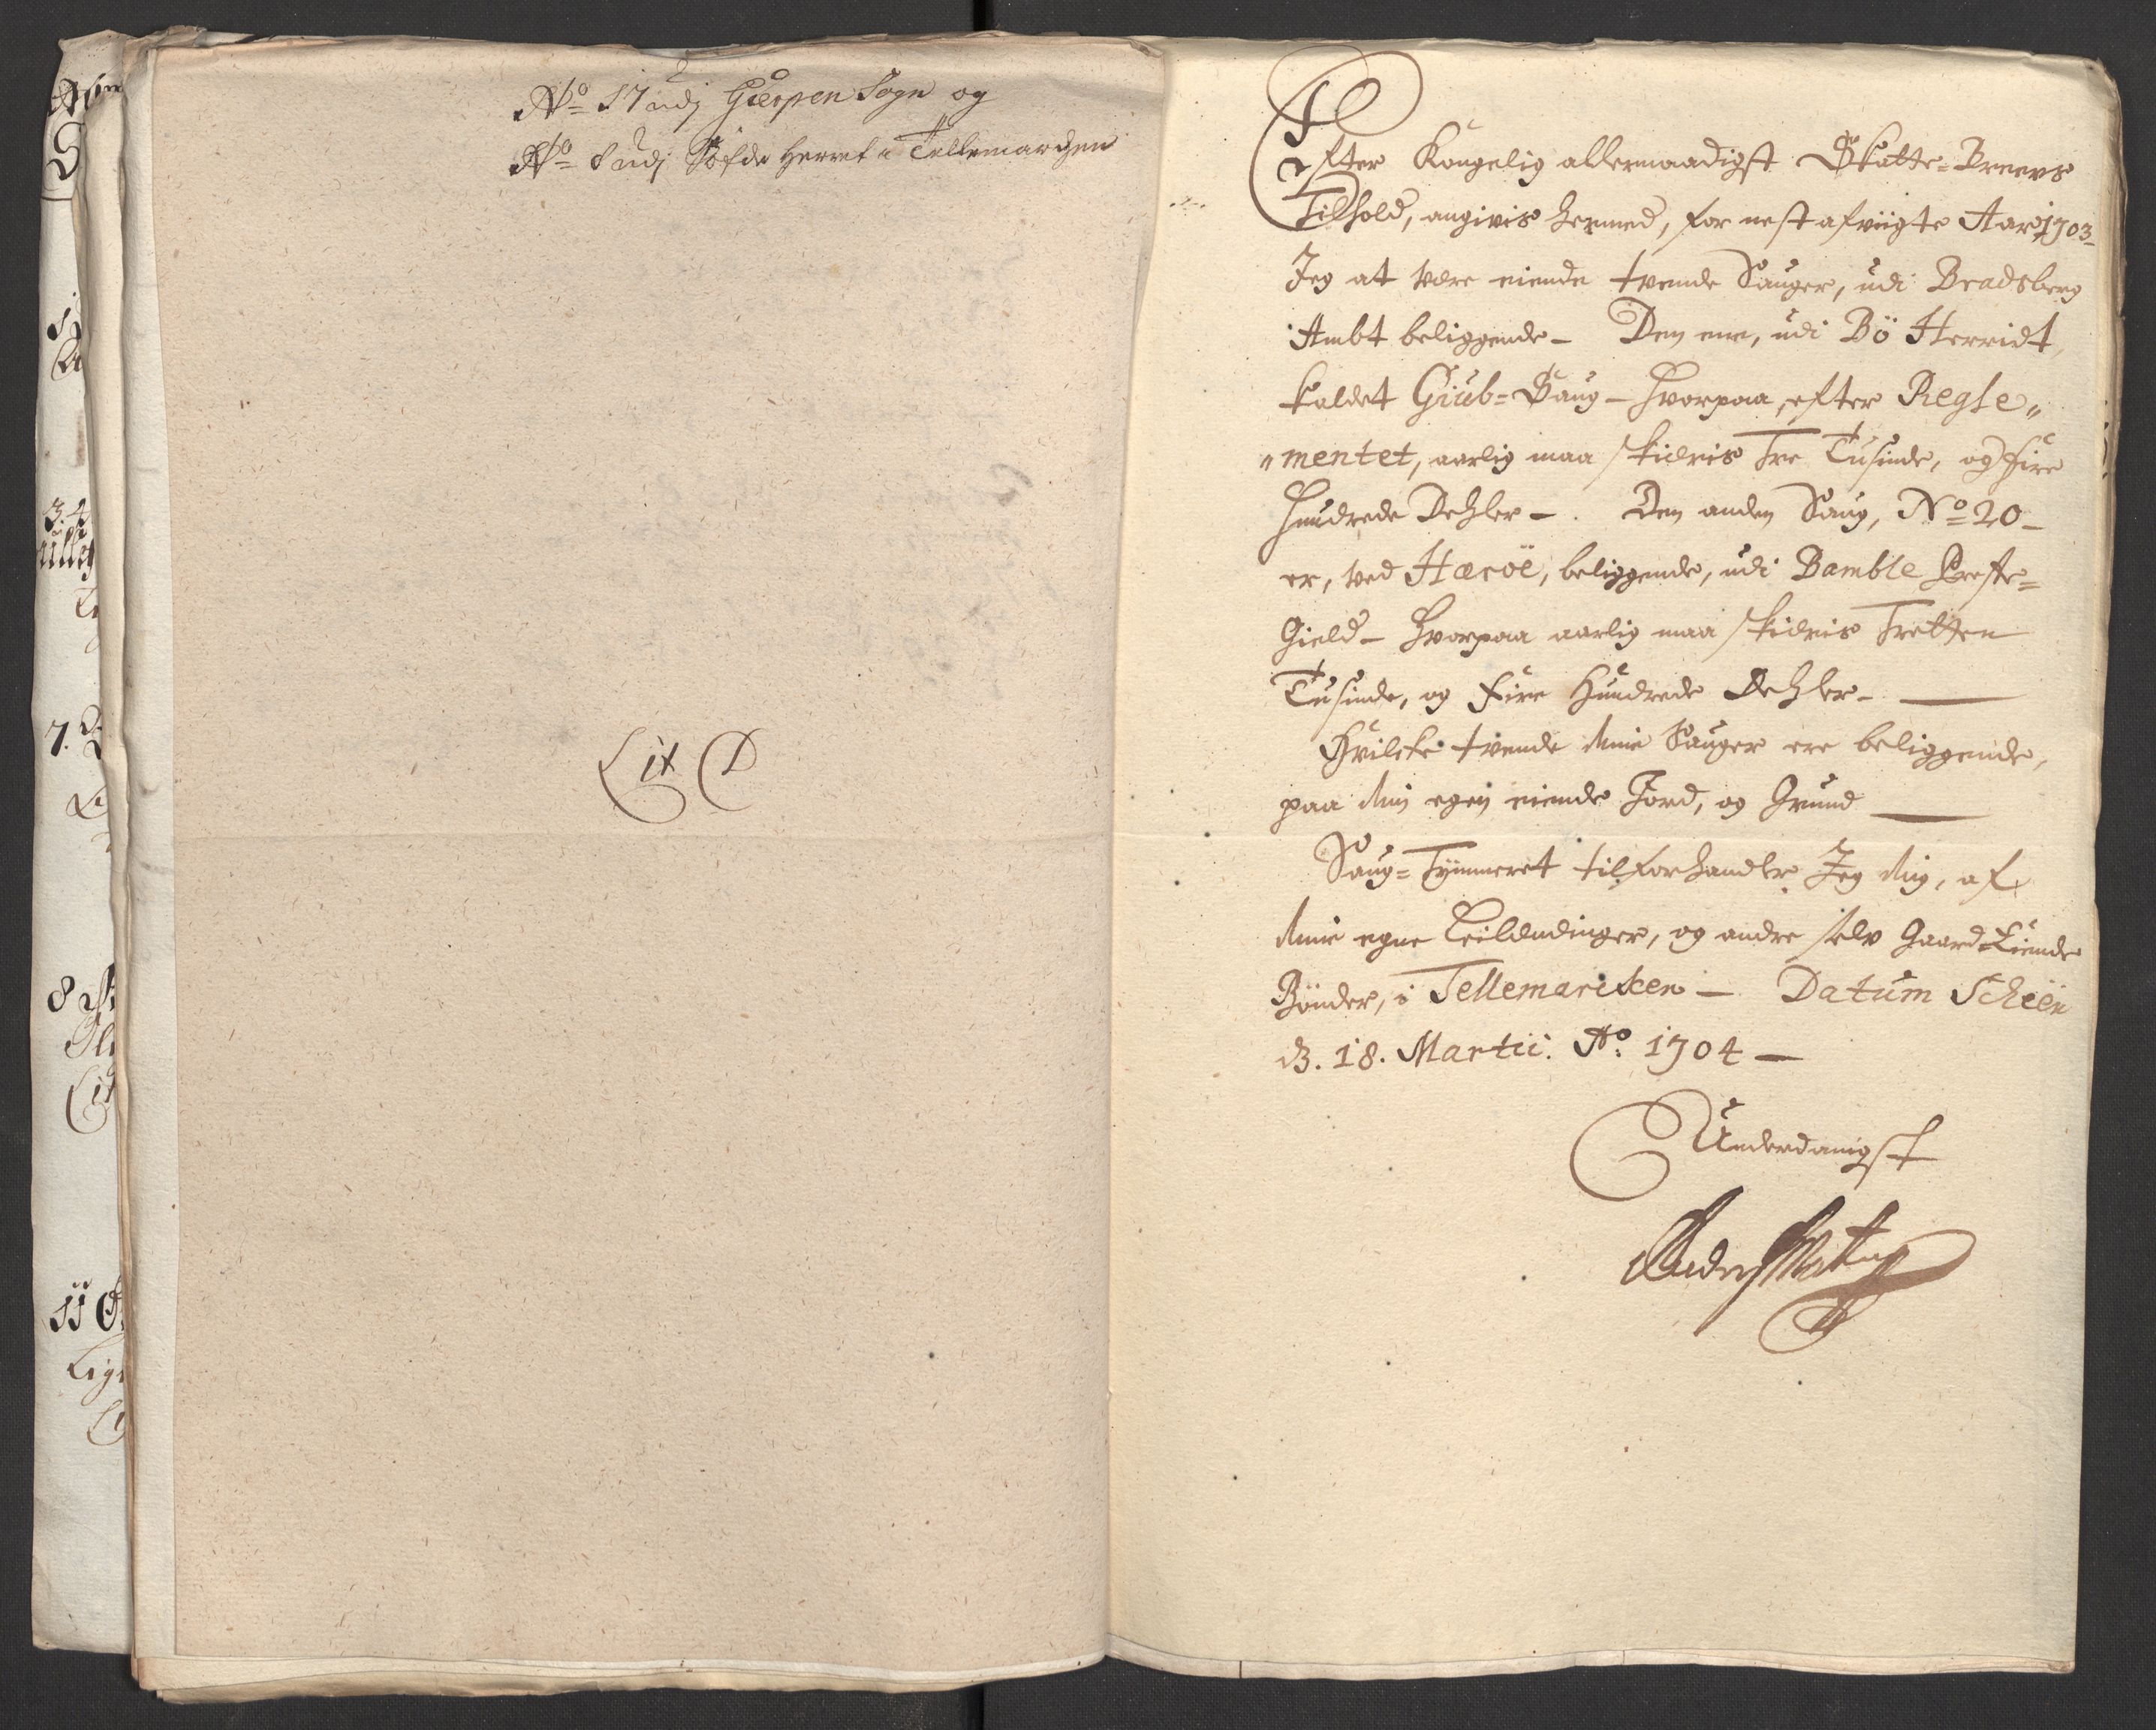 No 17 udj Gierpen Sogn og
No 8 udj Söfde Herret i Tellemarchen
Lit D
Efter Kongelig allernaadigst Skatte-Breevs
Tilhold, angivis hermed, for nest afviigte Aar 1703-
Jeg at være eiende tvende Sauger, udi Bradsberg
Ambt beliggende - Den ene, udi Bö Herridt,
kaldet Giub-Saug - hvorpaa, efter Regle„
„mentet, aarlig maa skieris Tre Tusinde, og Fire
Hundrede Dehler -. Den anden Saug, No 20 -
er, ved Hæröe, beliggende, udi Bamble Preste-
Gield - hvorpaa aarlig maa skieris Tretten
Tusinde, og Fire Hundrede Dehler -
Hvilcke tvende mine Sauger ere beliggende,
paa min egen eiende Jord, og Grund
Saug-Tymmeret tilforhandler Jeg mig, af
mine egne Leilendinger, og andre selv Gaard-Eiende
Bönder, i Tellemarcken - Datum Scheen
d. 18. Martii. Ao. 1704 -
Underdanigst